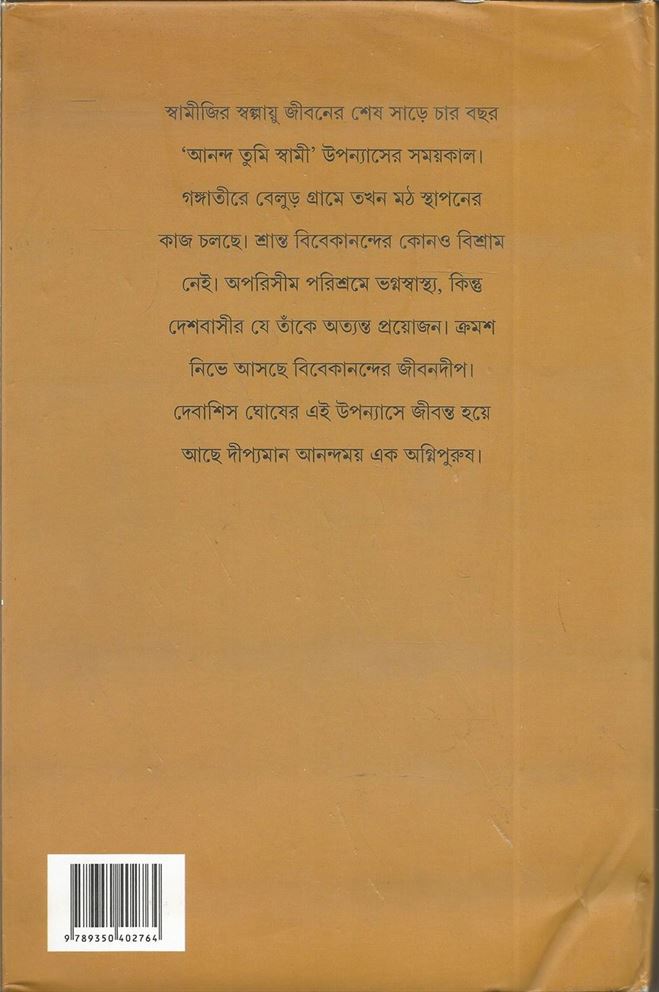 স্বামীজির স্বল্পায়ু জীবনের শেষ সাড়ে চার বছর
‘আনন্দ তুমি স্বামী’ উপন্যাসের সময়কাল।
গঙ্গাতীরে বেলুড় গ্রামে তখন মঠ স্থাপনের
কাজ চলছে। শ্রান্ত বিবেকানন্দের কোনও বিশ্রাম
নেই। অপরিসীম পরিশ্রমে ভগ্নস্বাস্থ্য, কিন্তু
দেশবাসীর যে তাঁকে অত্যন্ত প্রয়োজন। ক্রমশ
নিভে আসছে বিবেকানন্দের জীবনদীপ।
দেবাশিস ঘোষের এই উপন্যাসে জীবন্ত হয়ে
আছে দীপ্যমান আনন্দময় এক অগ্নিপুরুষ।
9 789350 402764